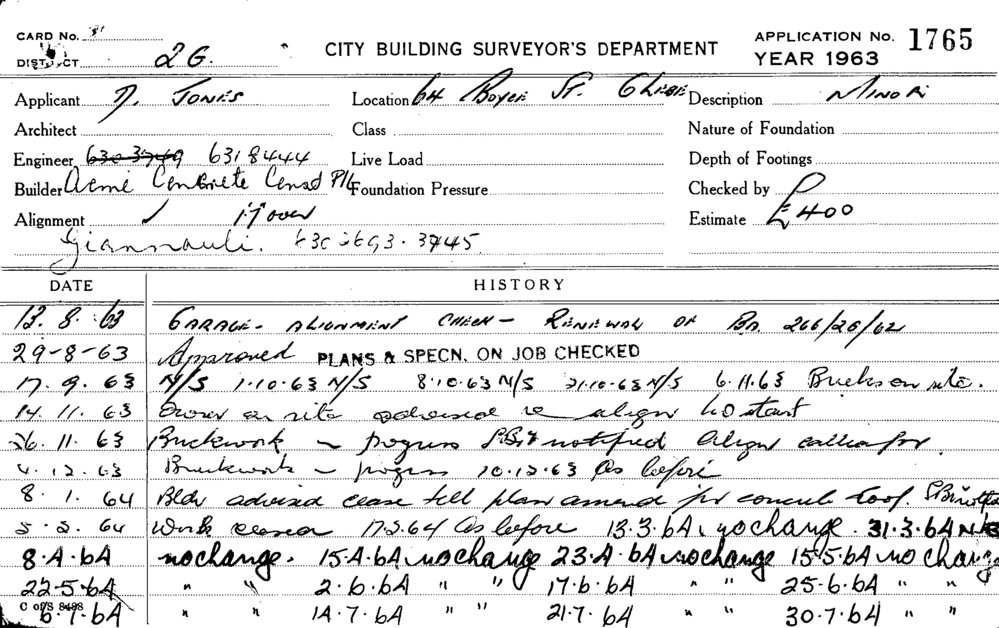 CARD No.
DISTRICT 2G.
CITY BUILDING SURVEYOR'S DEPARTMENT
APPLICATION No. 1765
YEAR 1963
Applicant D. JONES Location 64 Boyce St. GLEBE Description MINOR
Architect Class Nature of Foundation
Engineer 6318444 Live Load Depth of Footings
Builder Acme Concrete Const P/L Foundation Pressure Checked by
Alignment ✓ 1'7 over Estimate £400
Giannauli. 3745
DATE HISTORY
13. 8. 63 GARAGE - ALIGNMENT CHECK - RENEWAL OF BA. 266/26/62
29-8-63 Approved PLANS & SPECN. ON JOB CHECKED
17. 9. 63 N/S 1.10.63 N/S 8.10.63 N/S 21.10.63 N/S 6.11.63 Bricks on site.
14. 11. 63 Owner on site advised re align to start
26. 11. 63 Brickwork in progress notified Align
4. 12. 63 Brickwork in progress 10.12.63 As before
8. 1. 64 Bldr advised cease till plan amend for concrete roof.
5. 2. 64 Work ceased 17.2.64 As before 13.3.64 no change. 31.3.64 N/C
8.4.64 no change. 15.4.64 no change 23.4.64 no change 15.5.64 no change
22.5.64 " " 2.6.64 " " 17.6.64 " " 25.6.64 " "
C of S 8488
6.7.64 " " 14.7.64 " " 21.7.64 " " 30.7.64 " "